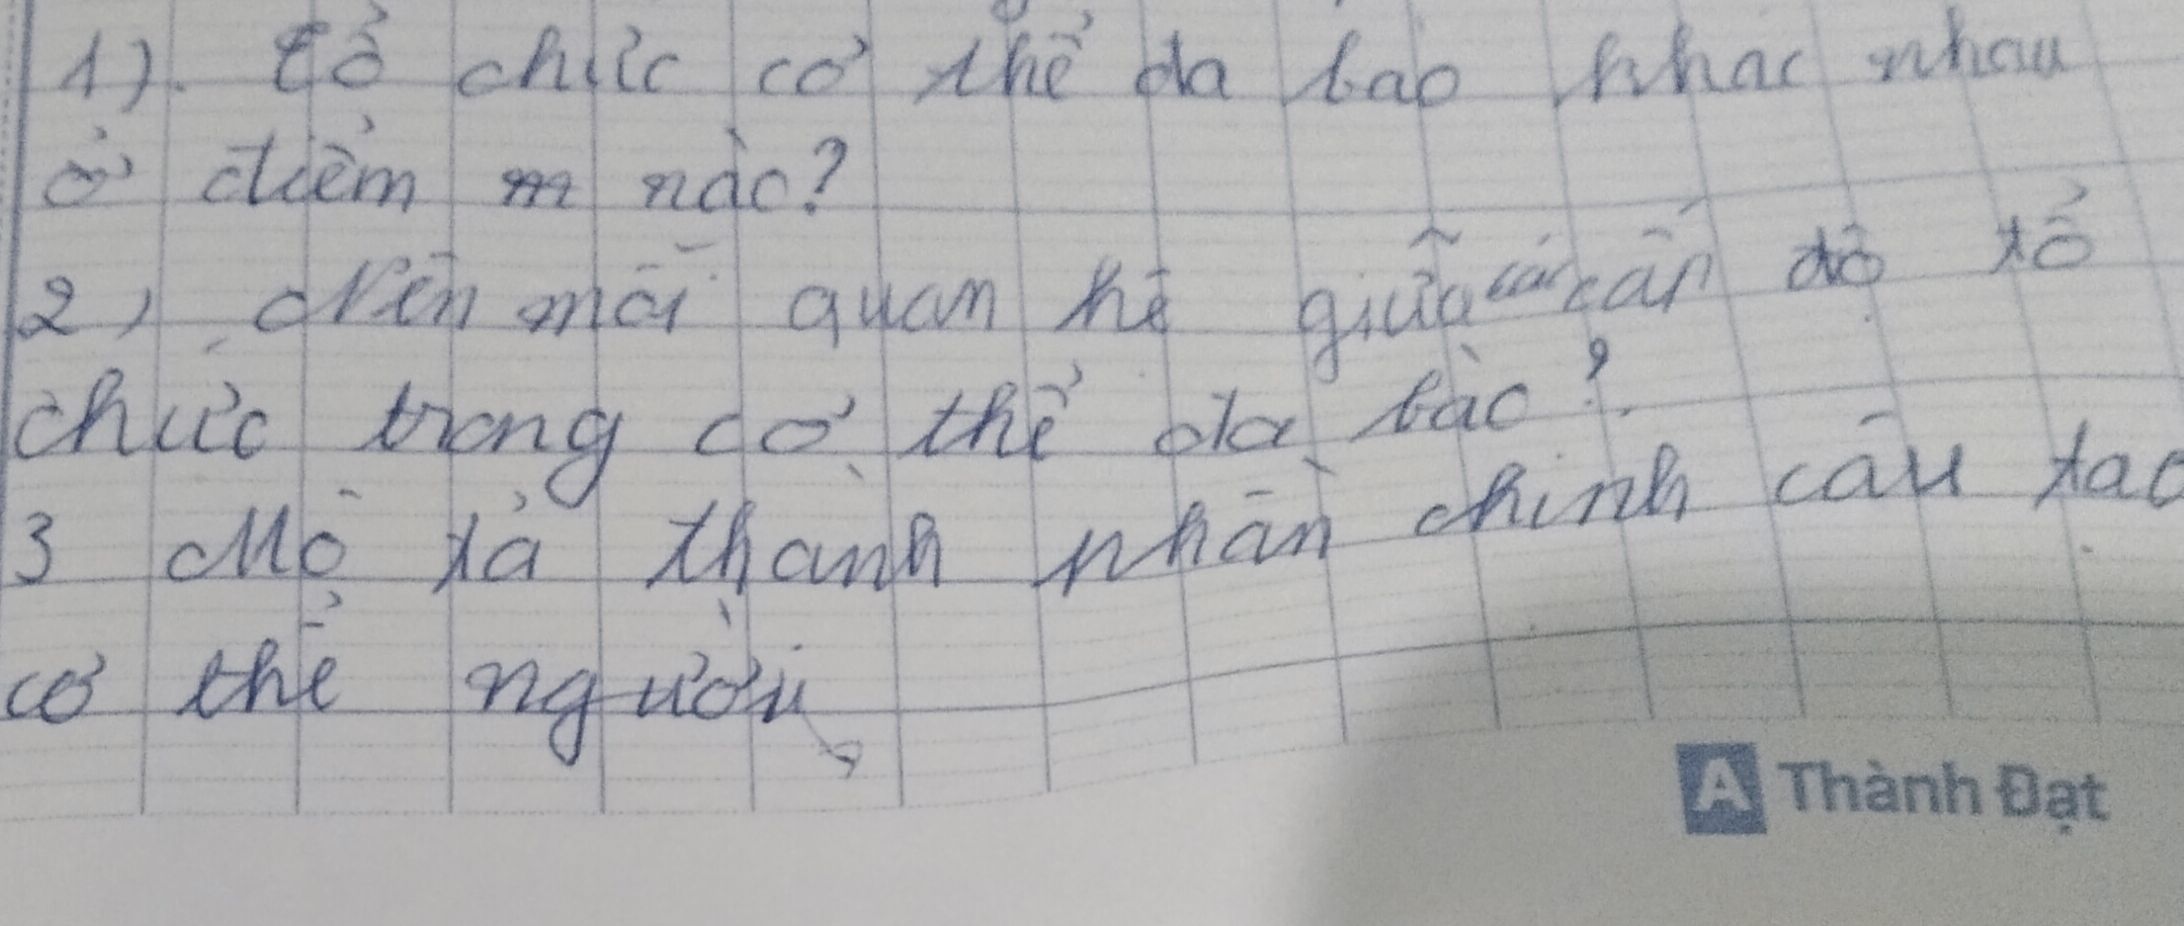 1). tổ chức cơ thể đa bào khác nhau
ở điểm nào?
2, Nên mối quan hệ giữa các cấp độ tổ
chức trong cơ thể đa bào?
3 Mô tả thành phần chính cấu tạo
cơ thể người
A Thành Đạt